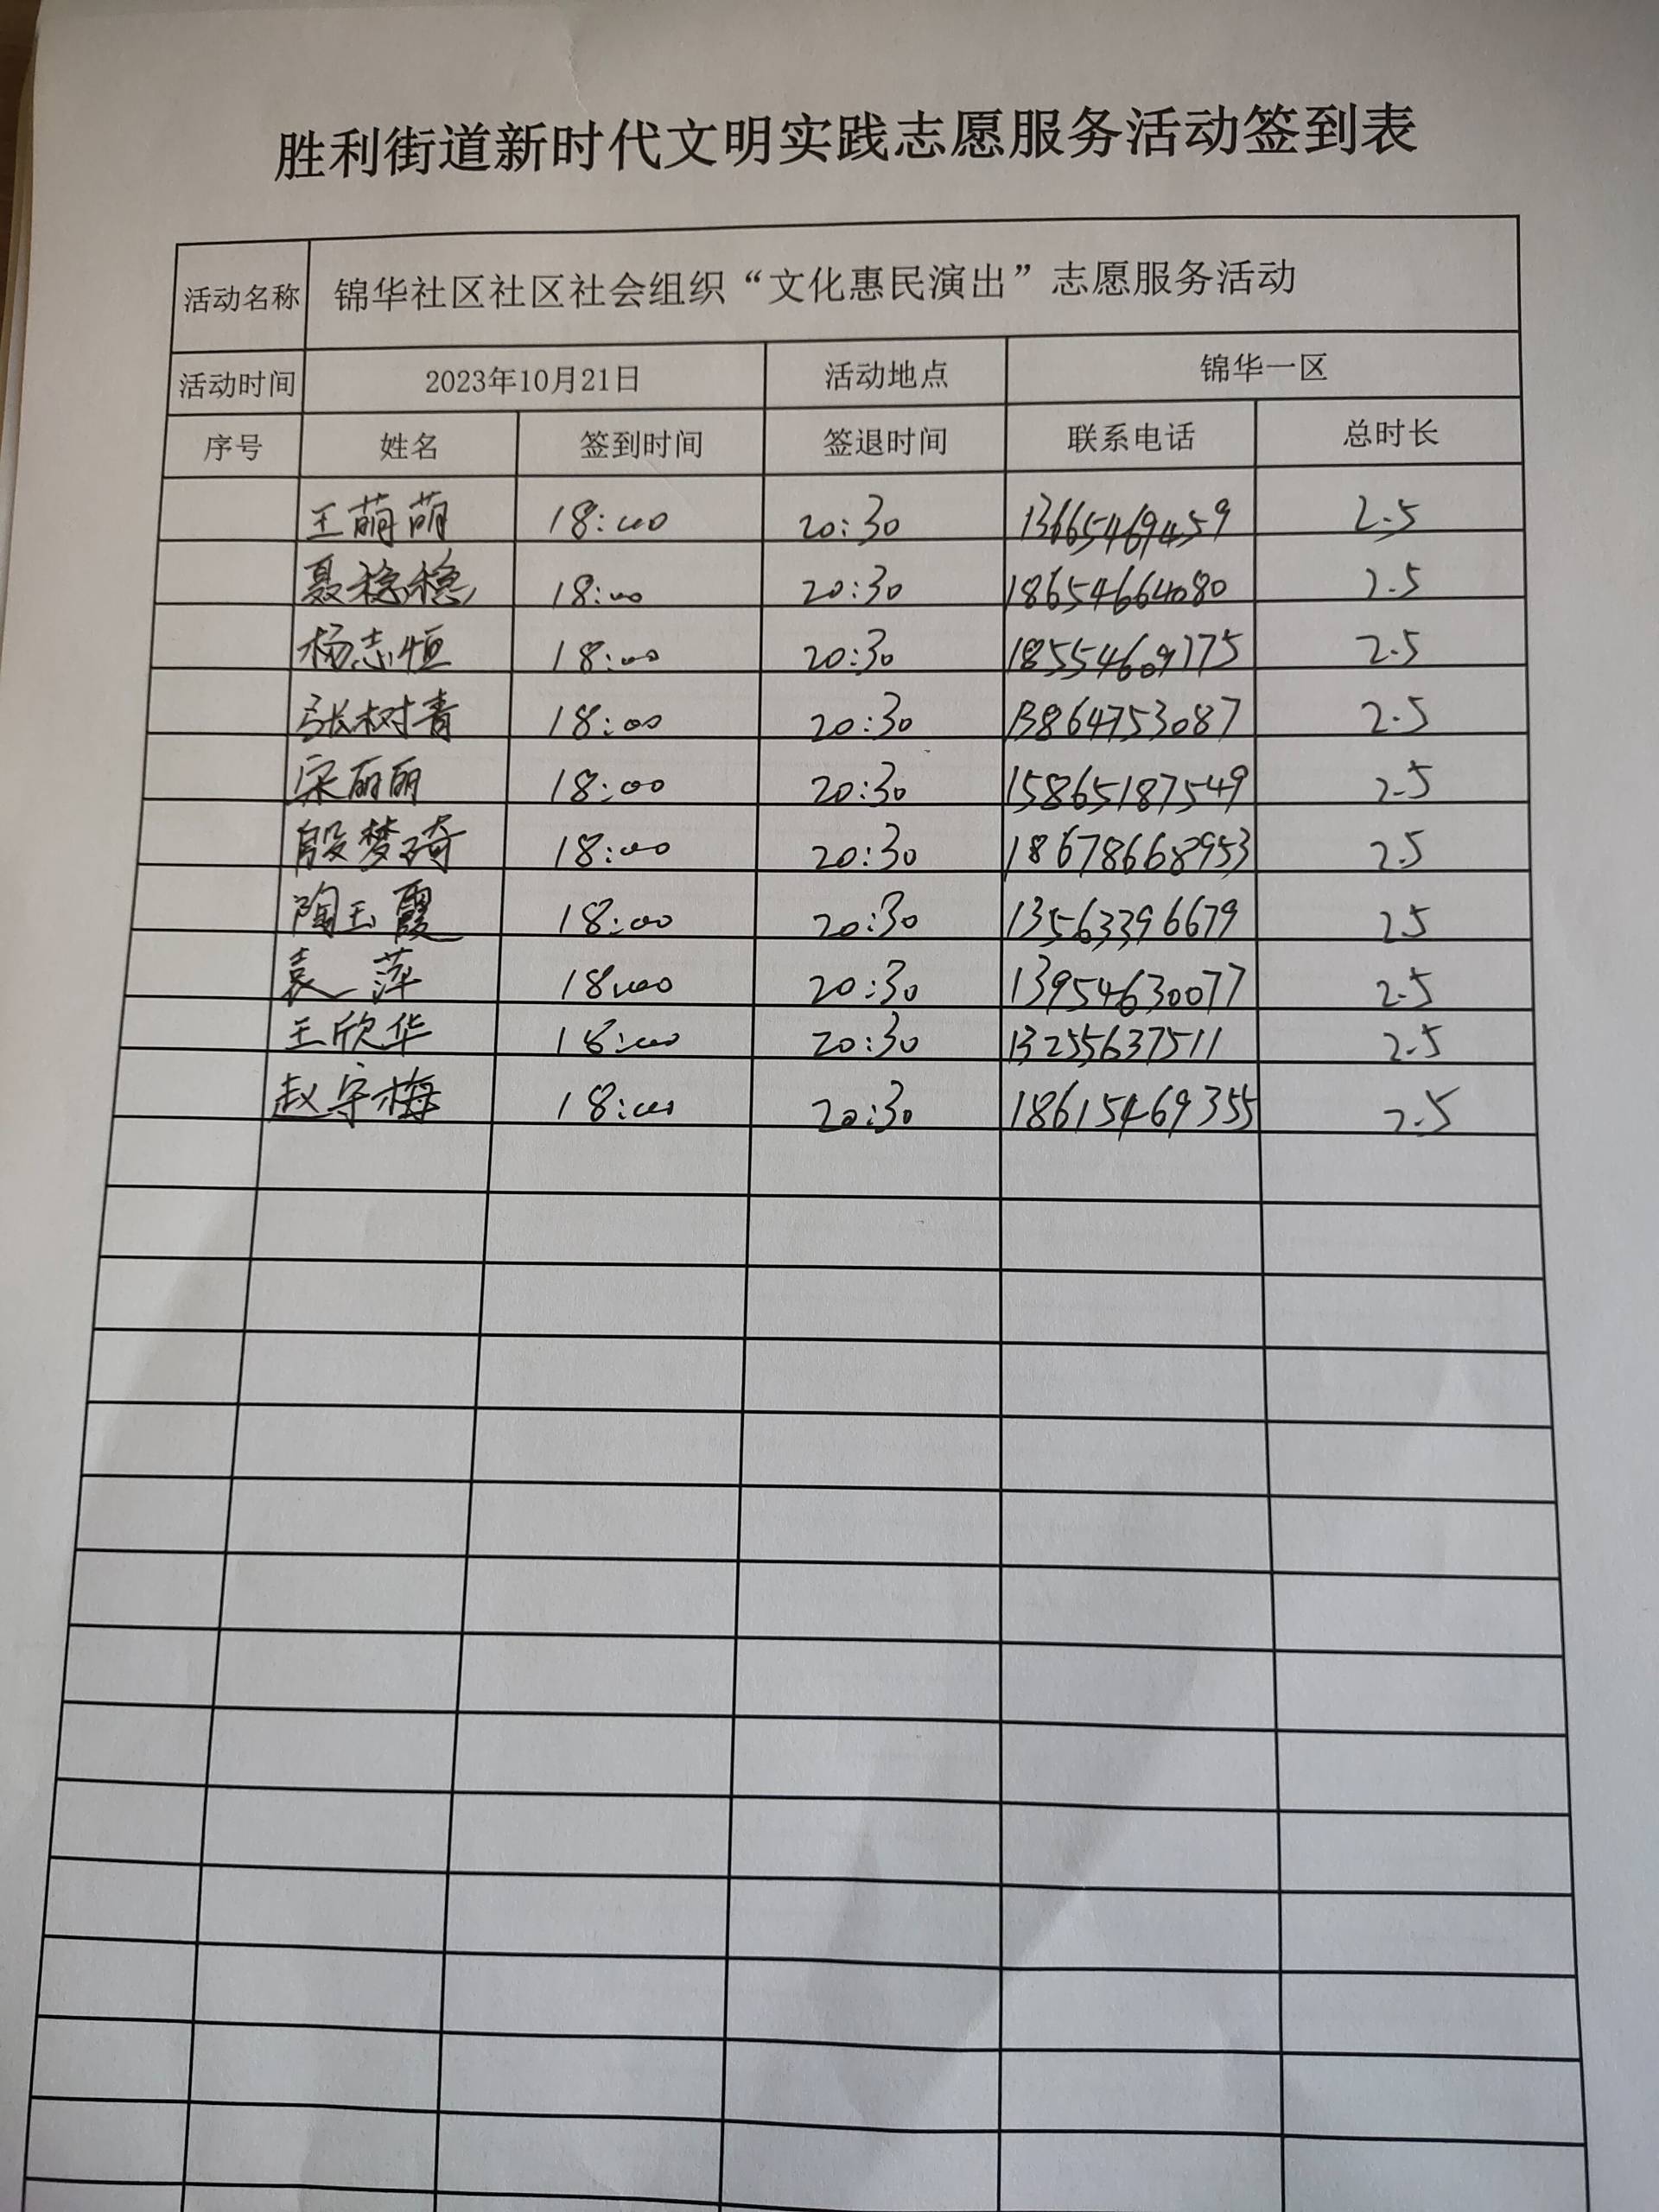 胜利街道新时代文明实践志愿服务活动签到表
活动名称 锦华社区社区社会组织“文化惠民演出”志愿服务活动
活动时间 2023年10月21日 活动地点 锦华一区
序号 姓名 签到时间 签退时间 联系电话 总时长
王萌萌 18:00 20:30 13665469459 2.5
聂稳稳 18:00 20:30 18654664080 2.5
杨志恒 18:00 20:30 18554609775 2.5
张树青 18:00 20:30 13864753087 2.5
宋丽丽 18:00 20:30 15865187549 2.5
殷梦琦 18:00 20:30 18678668953 2.5
陶玉霞 18:00 20:30 13563396679 2.5
袁萍 18:00 20:30 13954630077 2.5
王欣华 18:00 20:30 13255637511 2.5
赵守梅 18:00 20:30 18615469355 2.5